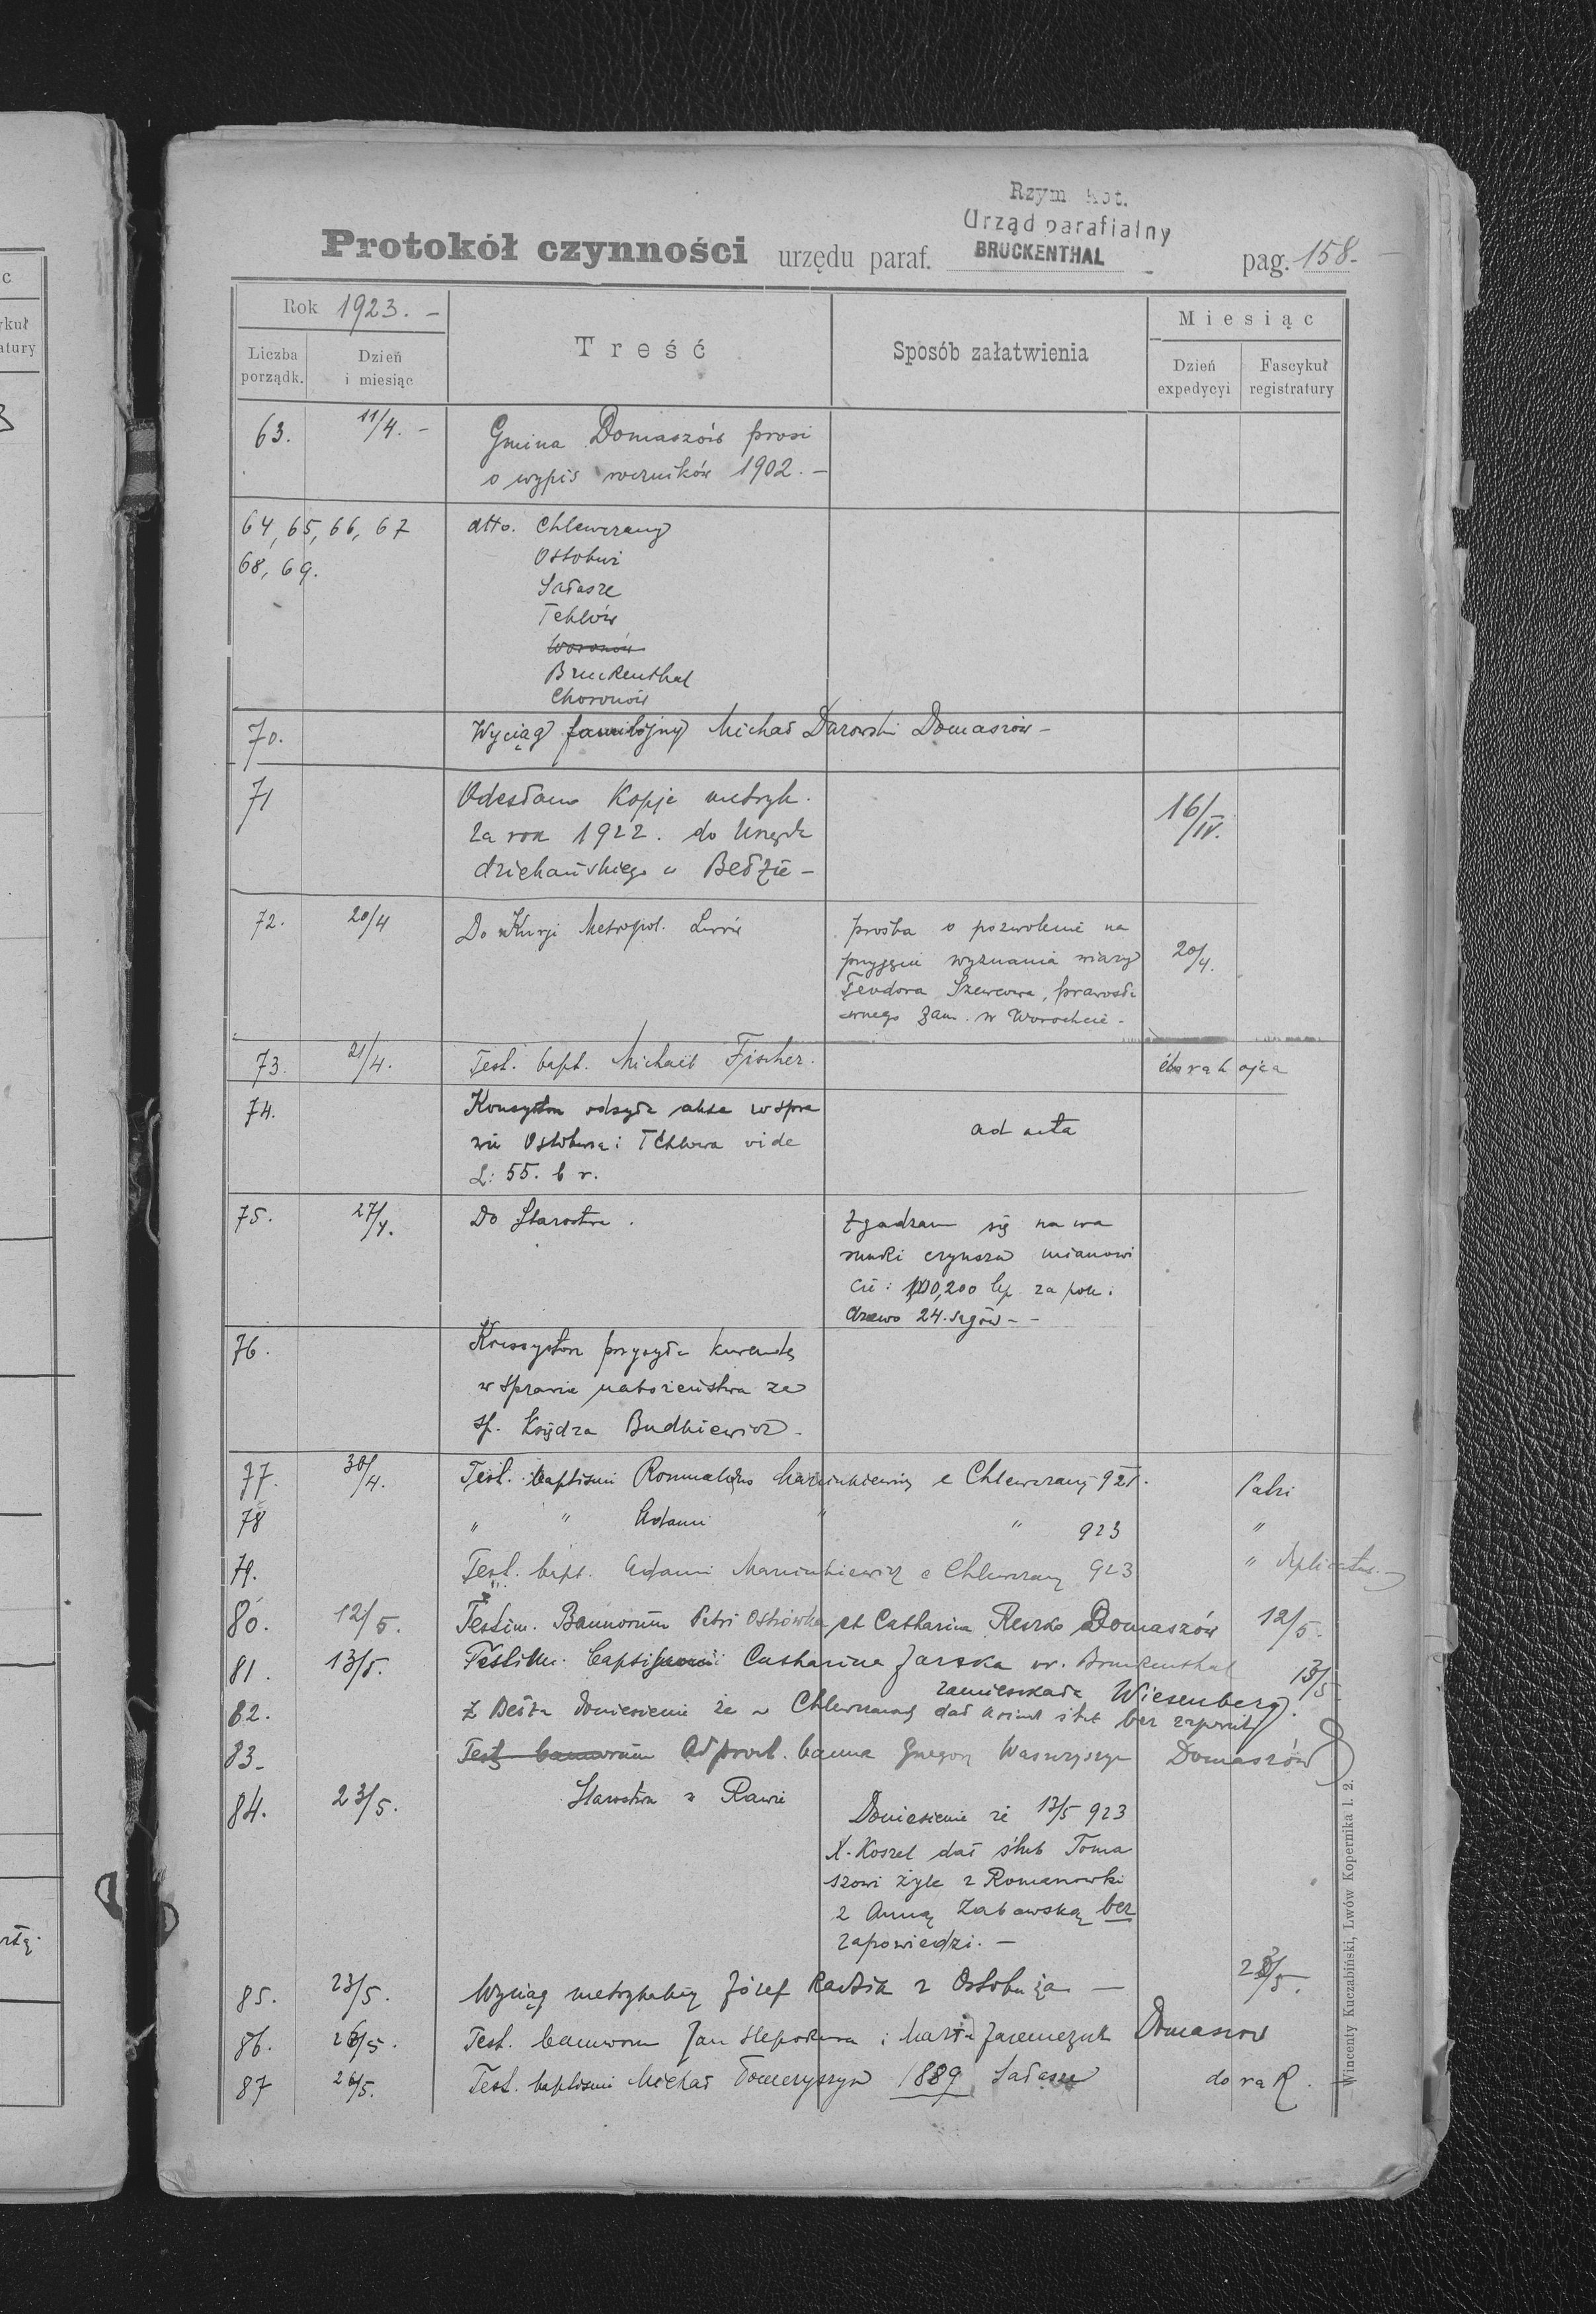 Rzym Kat.
Urząd parafialny
BRUCKENTHAL
Protokół czynności urzędu paraf. pag. 158.
Rok 1923. -
Miesiąc
Liczba porządk.
Dzień i miesiąc
Treść
Sposób załatwienia
Dzień expedycyi
Fascykuł registratury
63. 11/4. - Gmina Domaszów prosi
o wypis roczników 1902. -
64, 65, 66, 67 dtto. Chlewczany
68, 69. Ostobuż
Sałasze
Tehlów
Woronów
Bruckenthal
Choronów
70. Wyciąg familijny Michał Darowski Domaszów -
71 Odesłano Kopje metryk.
za rok 1922. do Urzędu 16/IV.
dziekańskiego w Bełzie -
72. 20/4 Do Kurji Metropol. Lwów prośba o pozwolenie na
przyjęcie wyznania wiary 20/4.
Teodora Szewcowa, prawosła
wnego zam. w Worochcie -
73. 21/4. Test. bapt. Michael Fischer. do rąk ojca
74. Konsystorz odsyła akta w spra
wie Ostobuża i Tehlowa vide ad acta
L: 55. b r.
75. 27/4. Do Starostwa. Zgadzam się na wa
runki czynszu mianowi
cie: 100,200 za pole i
drzewo 24. sągów - -
76. Konsystorz przysyła kurendę
w sprawie nabożeństwa za
sp. Księdza Budkiewicz -
77. 30/4. Test. baptismi Romualdus Marcinkiewicz e Chlewczany 921. Patri
78 " " Adami " " 923 "
79. Test. bapt. Adami Marcinkiewicz e Chlewczany 923 "
80. 12/5. Testim. Bannorum Petri Ostrówka et Catharina Reszko Domaszów 12/5.
81. 13/5. Testim. baptismi Catharina Jarska Bruckenthal 13/5.
zamieszkała Wiesenberg.
82. Z Bełza doniesienie że w Chlewczanach dał ślub bez zapowiedzi
83. Test bannorum Ad prod. banna Gregorz Waszczyszyn Domaszów
84. 23/5. Starostwo w Rawie Doniesienie że 13/5 923
X. Koszel dał ślub Toma
szowi Żyle z Romanówki
z Anną Zabawską bez
zapowiedzi. -
85. 23/5. Wyciąg metrykalny Józef Radzik z Ostobuża - 23/5.
86. 26/5. Test. bannorum Jan Slepokura i Maria Jaremczuk Domaszow
87 26/5. Test. baptismi Michał Tomczyszyn 1889 Sałasze do rąk.
Wincenty Kuczabiński, Lwów Kopernika l. 2.